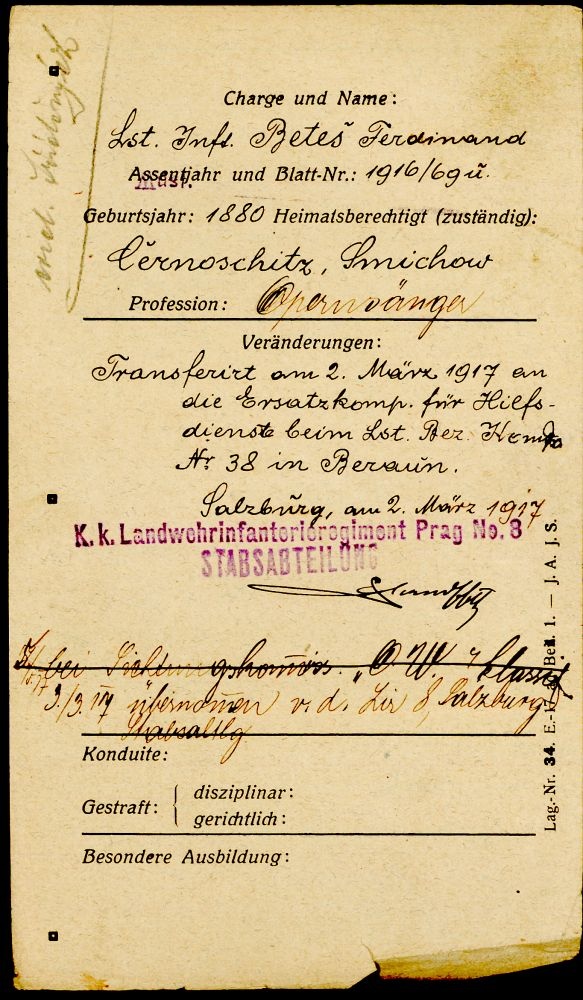 Charge und Name:
Lst. Inft. Beteš Ferdinand
Assentjahr und Blatt-Nr.: 1916/69 ü.
Must.
Geburtsjahr: 1880 Heimatsberechtigt (zuständig):
Černoschitz, Smichow
Profession: Opernsänger
Veränderungen:
Transferirt am 2. März 1917 an
die Ersatzkomp. für Hilfs-
dienste beim Lst. Bez. Komdo
Nr 38 in Beraun.
Salzburg, am 2. März 1917
K. k. Landwehrinfanterieregiment Prag No. 8
STABSABTEILUNG
bei "C. W. klassif
3./3. 17 übernommen v. d. Lir 8, Salzburg
Stabsabtlg
Konduite:
Gestraft: disziplinar:
gerichtlich:
Besondere Ausbildung:
Lag.-Nr. 34. E.- Beil. 1. — J. A. J. S.